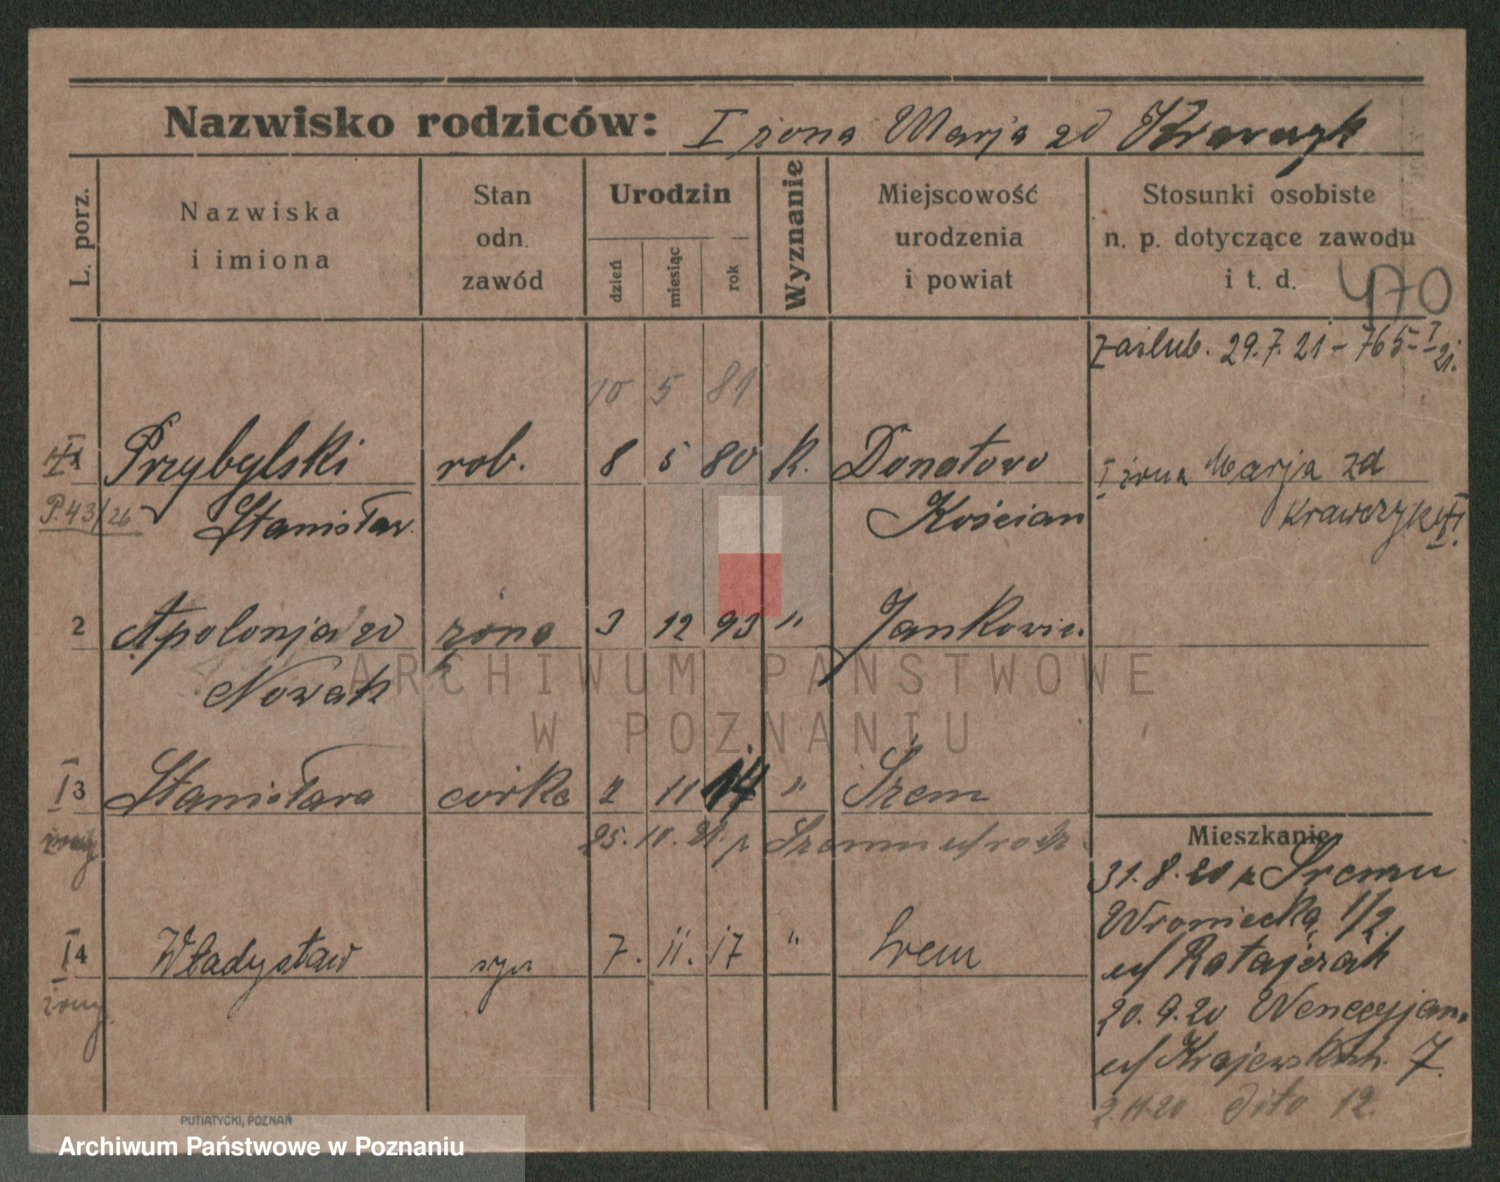 Nazwisko rodziców: I żona Marja zd Krawczyk
L. porz.
Nazwiska
i imiona
Stan
odn.
zawód
Urodzin
dzień
miesiąc
rok
Wyznanie
Miejscowość
urodzenia
i powiat
Stosunki osobiste
n. p. dotyczące zawodu
i t. d.
470
zaślub. 29.7.21 - 765 - I - 21.
10 5 81
1 Przybylski rob. 8 5 80 k. Donatowo
P.43/26 Stanisław Kościan
I żona Marja zd
Krawczyk
2 Apolonja zd żona 3 12 93 " Jankowic.
Nowak
I 3 Stanisława córka 2 11 14 " Szem
żony 25. 10. 21. p Szemu
I 4 Władysław syn 7. 11. 17 " Srem
żony
Mieszkanie
31.8.20 z Sremu
Wroniecka 1/2.
u/ Ratajczak
20.9.20 Wenecjan.
u/ Krajewskich. 7.
2.11.20 dito 12.
PUTIATYCKI, POZNAŃ
ARCHIWUM PAŃSTWOWE
W POZNANIU
Archiwum Państwowe w Poznaniu